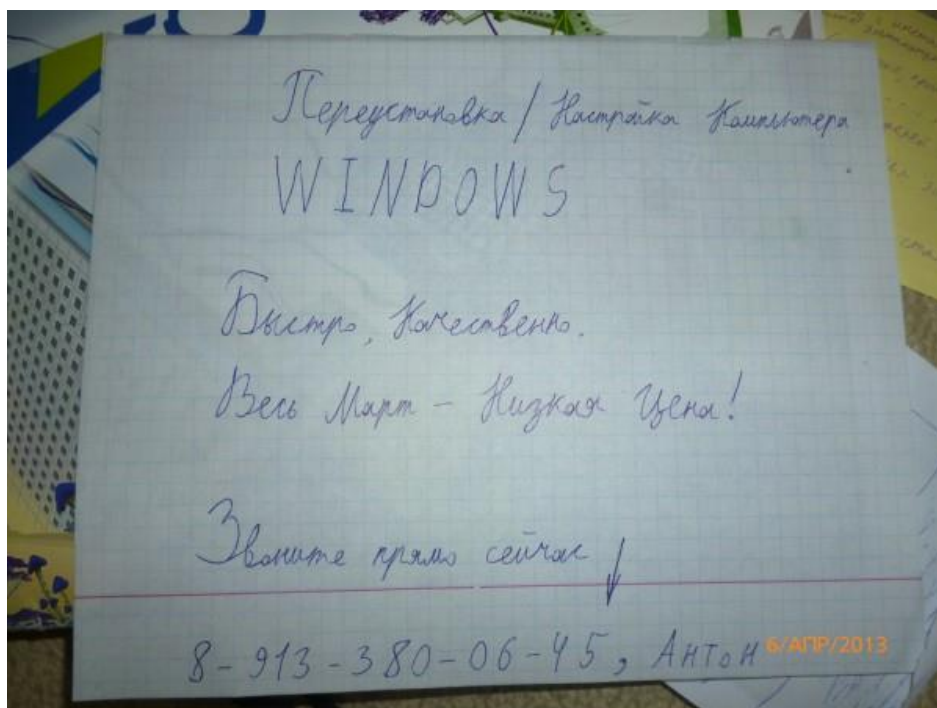 Переустановка / Настройка Компьютера
WINDOWS
Быстро, Качественно.
Весь Март - Низкая Цена!
Звоните прямо сейчас ↓
8-913-380-06-45, Антон
6/АПР/2013